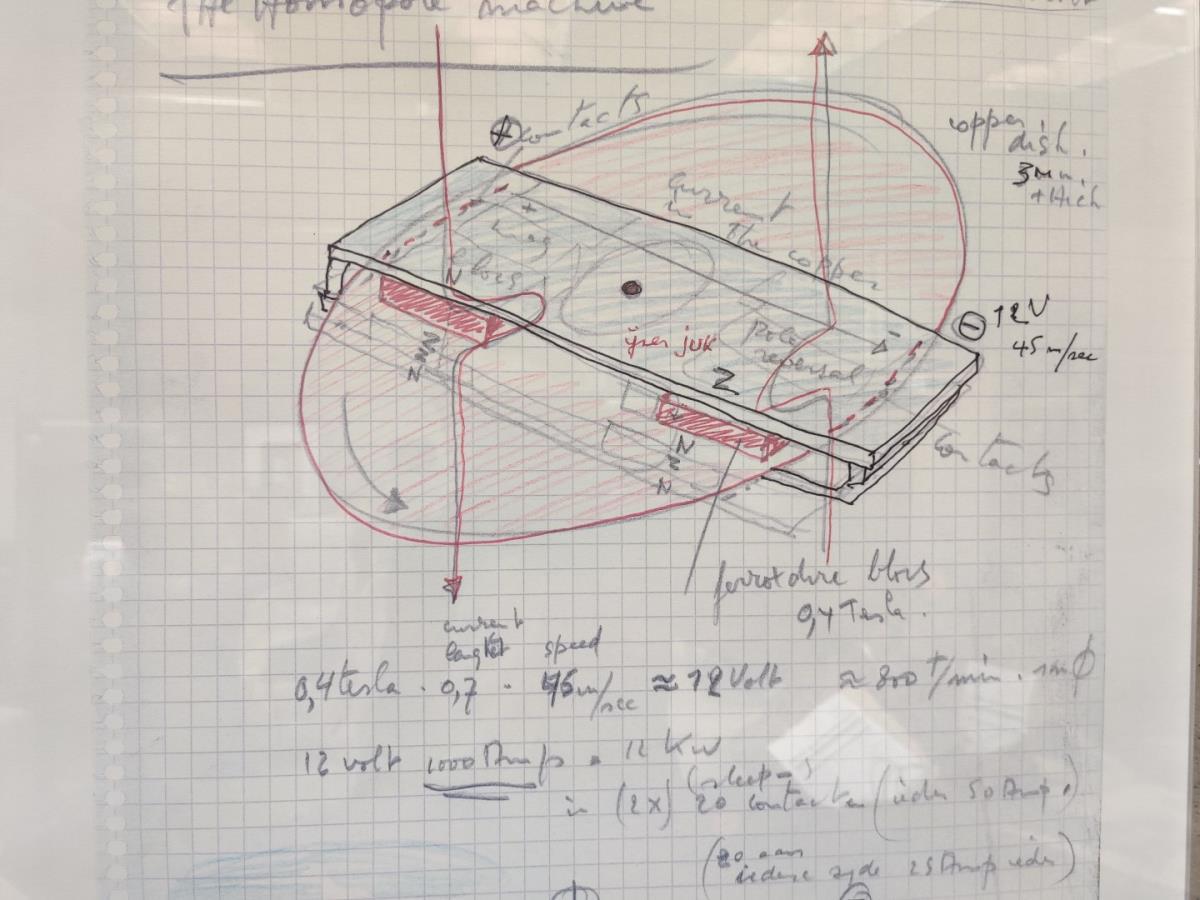 THE Homopole machine
⊕ contacts
copper
dish.
3 mm.
thick
current
in
the copper
+
mag
blocs
N
-
⊖ 12V
45 m/sec
yzer juk
pole
reversal
Z
N
N
Z
N
Z
N
contacts
ferroxdure blocs
0,4 Tesla.
current
lenght speed
0,4 tesla . 0,7 . 45 m/sec ≈ 12 Volt ≈ 800 t/min. 1m ϕ
12 volt 1000 Amps = 12 KW
(sleep-)
in (2x) 20 contacten (ieder 50 Amp.)
(20 aan
iedere zyde 25 Amp ieder)